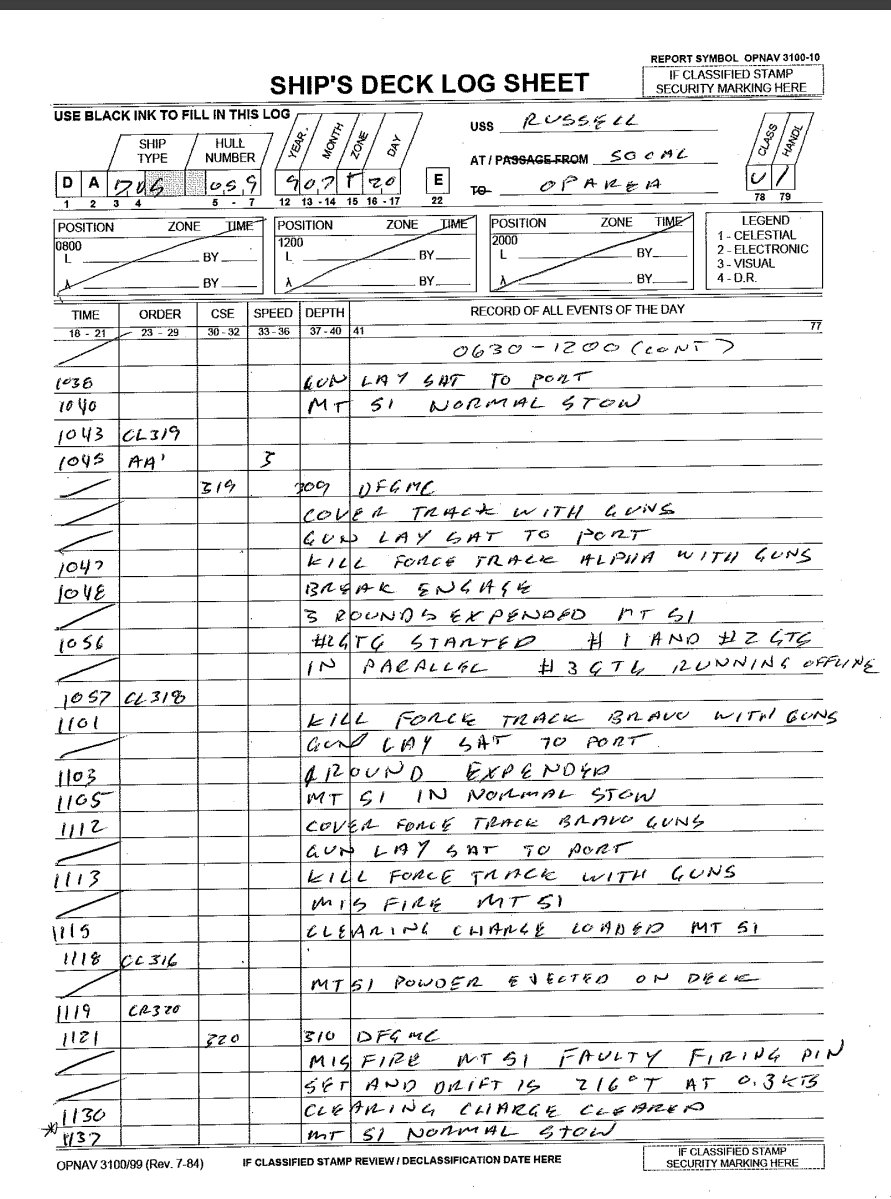 REPORT SYMBOL OPNAV 3100-10
IF CLASSIFIED STAMP
SECURITY MARKING HERE
SHIP'S DECK LOG SHEET
USE BLACK INK TO FILL IN THIS LOG
USS RUSSELL
AT / PASSAGE FROM SOCAL
TO OPAREA
SHIP TYPE HULL NUMBER YEAR. MONTH ZONE DAY CLASS HANDL
D A 059 9 07 T 20 E U 1
1 2 3 4 5 - 7 12 13 - 14 15 16 - 17 22 78 79
POSITION ZONE TIME POSITION ZONE TIME POSITION ZONE TIME LEGEND
0800 1200 2000 1 - CELESTIAL
L BY L BY L BY 2 - ELECTRONIC
3 - VISUAL
λ BY λ BY λ BY 4 - D.R.
TIME ORDER CSE SPEED DEPTH RECORD OF ALL EVENTS OF THE DAY
18 - 21 23 - 29 30 - 32 33-36 37 - 40 41 77
0630-1200 (CONT)
1038 GUN LAY SAT TO PORT
1040 MT 51 NORMAL STOW
1043 CL319
1045 AA' 5
319 309 DFGMC
COVER TRACK WITH GUNS
GUN LAY SAT TO PORT
1047 KILL FORCE TRACK ALPHA WITH GUNS
1048 BREAK ENGAGE
3 ROUNDS EXPENDED MT 51
1056 #2 GTG STARTED #1 AND #2 GTG
IN PARALLEL #3 GTG RUNNING OFFLINE
1057 CL318
1101 KILL FORCE TRACK BRAVO WITH GUNS
GUN LAY SAT TO PORT
1103 1 ROUND EXPENDED
1105 MT 51 IN NORMAL STOW
1112 COVER FORCE TRACK BRAVO GUNS
GUN LAY SAT TO PORT
1113 KILL FORCE TRACK WITH GUNS
MISFIRE MT 51
1115 CLEARING CHARGE LOADED MT 51
1118 CL316
MT 51 POWDER EJECTED ON DECK
1119 CR320
1121 320 310 DFGMC
MISFIRE MT 51 FAULTY FIRING PIN
SET AND DRIFT IS 216°T AT 0.3 KTS
*1130 CLEARING CHARGE CLEARED
1137 MT 51 NORMAL STOW
OPNAV 3100/99 (Rev. 7-84) IF CLASSIFIED STAMP REVIEW / DECLASSIFICATION DATE HERE
IF CLASSIFIED STAMP
SECURITY MARKING HERE